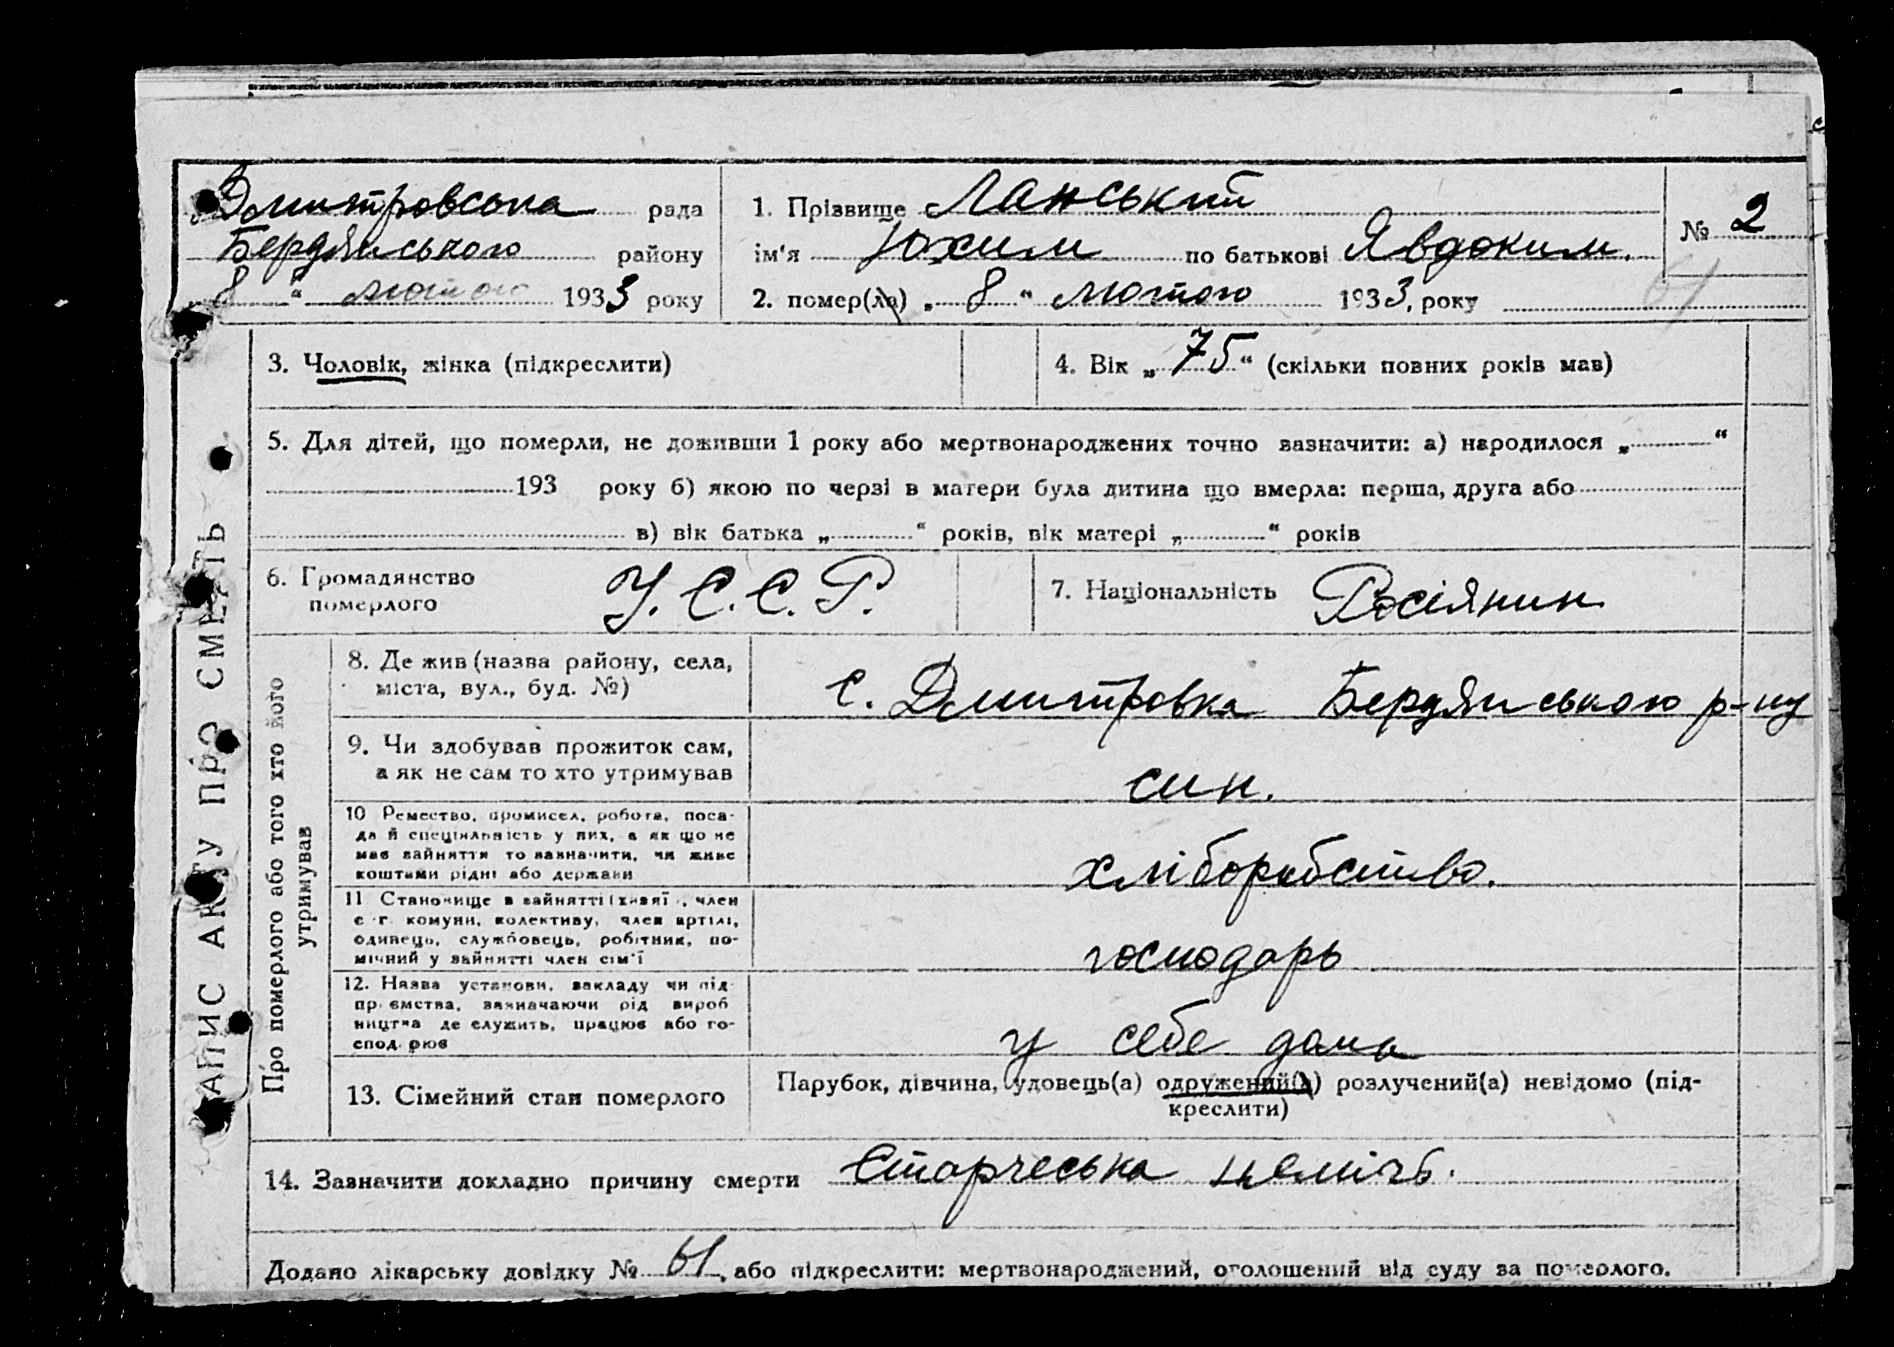 Дмитровська рада
Бердянського району
8 " лютого 1933 року
1. Прізвище Ланський
ім'я Юхим по батькові Явдоким.
2. помер(ла) „ 8 " лютого 1933, року
№ 2
61
3. Чоловік, жінка (підкреслити)
4. Вік „ 75 " (скільки повних років мав)
5. Для дітей, що померли, не доживши 1 року або мертвонароджених точно зазначити: а) народилося „ "
193 року б) якою по черзі в матери була дитина що вмерла: перша, друга або
в) вік батька „ " років, вік матері „ " років
6. Громадянство
померлого
У. С. С. Р.
7. Національність Росіянин
ЗАПИС АКТУ ПРО СМЕРТЬ
Про померлого або того хто його
утримував
8. Де жив (назва району, села,
міста, вул., буд. №)
с. Дмитровка Бердянського р-ну
9. Чи здобував прожиток сам,
а як не сам то хто утримував
син.
10 Ремество, промисел, робота, поса-
да й спеціяльність у них, а як що не
має зайняття то зазначити, чи живе
коштами рідні або держави
хліборобство.
11 Становище в зайнятті (хазяї, член
с.-г. комуни, колективу, член артілі,
одинець, службовець, робітник, по-
мічний у зайнятті член сім'ї
господарь
12. Назва установи, закладу чи під-
приємства, зазначаючи рід вироб
ництва де служить, працює або го-
сподарює
у себе дома
13. Сімейний стан померлого
Парубок, дівчина, удовець(а) одружений(а) розлучений(а) невідомо (під-
креслити)
14. Зазначити докладно причину смерти Старческа неміч.
Додано лікарську довідку № 61, або підкреслити: мертвонароджений, оголошений від суду за померлого.